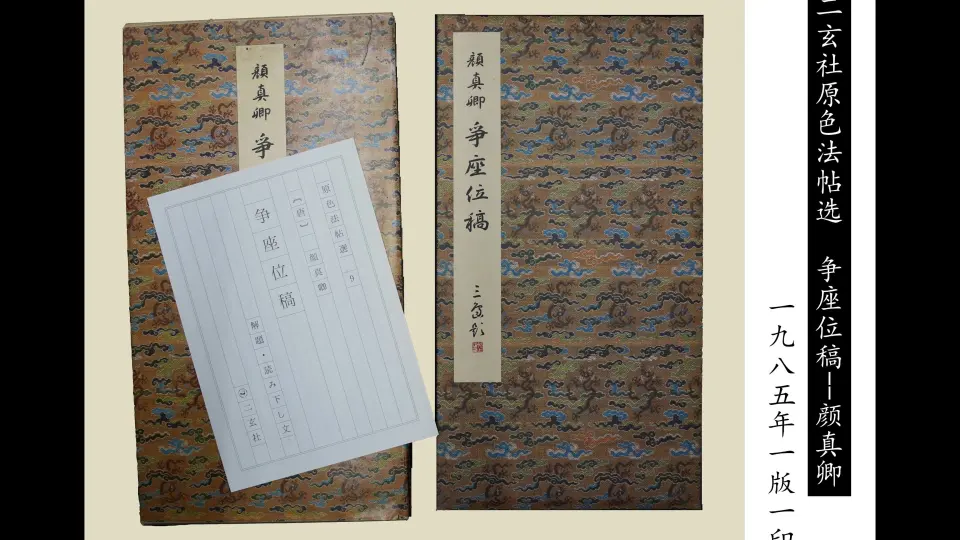 二玄社原色法帖选 争座位稿--颜真卿
一九八五年一版一印
顔真卿 爭座位稿
顔真卿 爭
原色法帖選 9
〔唐〕 顔真卿
争座位稿
解題・読み下し文
二玄社